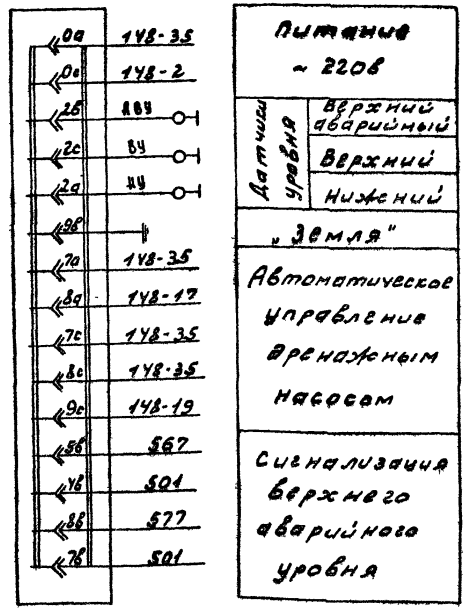 0а 148-35
0в 148-2
2в АВУ
2с ВУ
2а НУ
9в
7а 148-35
8а 148-17
7с 148-35
8с 148-35
9с 148-19
5в 567
4в 501
8в 577
7в 501
Питание
~ 220в
Датчики
уровня
Верхний
аварийный
Верхний
Нижений
„Земля"
Автоматическое
управление
дренажным
насосом
Сигнализация
верхнего
аварийного
уровня